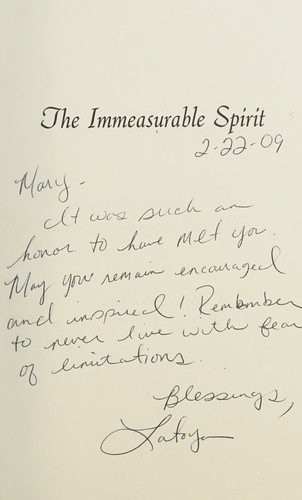 The Immeasurable Spirit
2-22-09
Mary -
It was such an
honor to have met you.
May you remain encouraged
and inspired! Remember
to never live with fear
of limitations.
Blessings,
Latoya